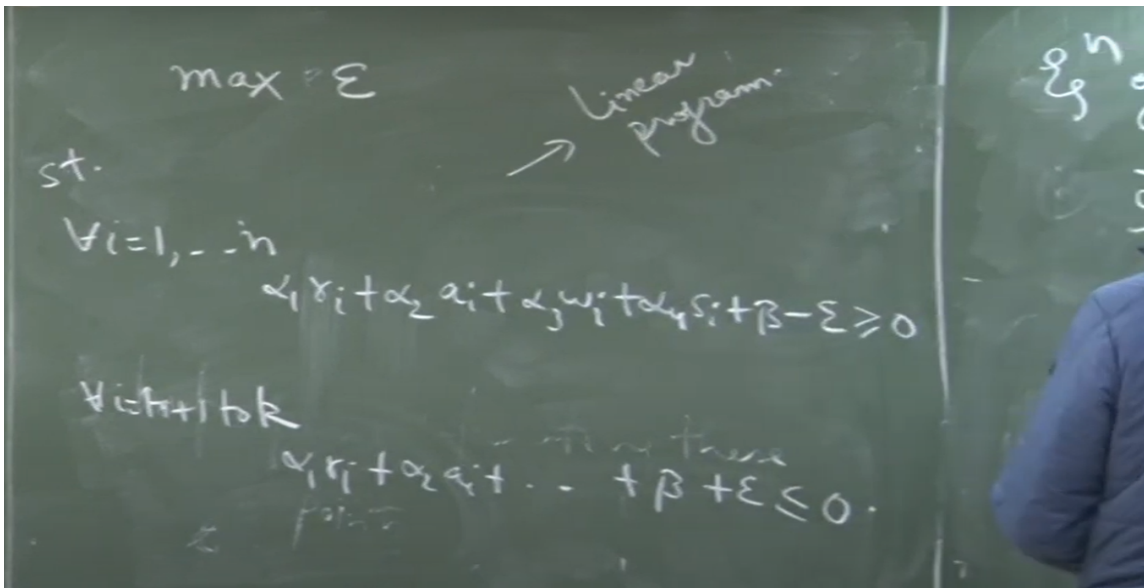 max ε
→ Linear program.
st.
∀i=1,...n
α₁ r_i + α₂ a_i + α₃ w_i + α₄ s_i + β - ε ≥ 0
∀i=n+1 to k
α₁ r_i + α₂ a_i + ... + β + ε ≤ 0.